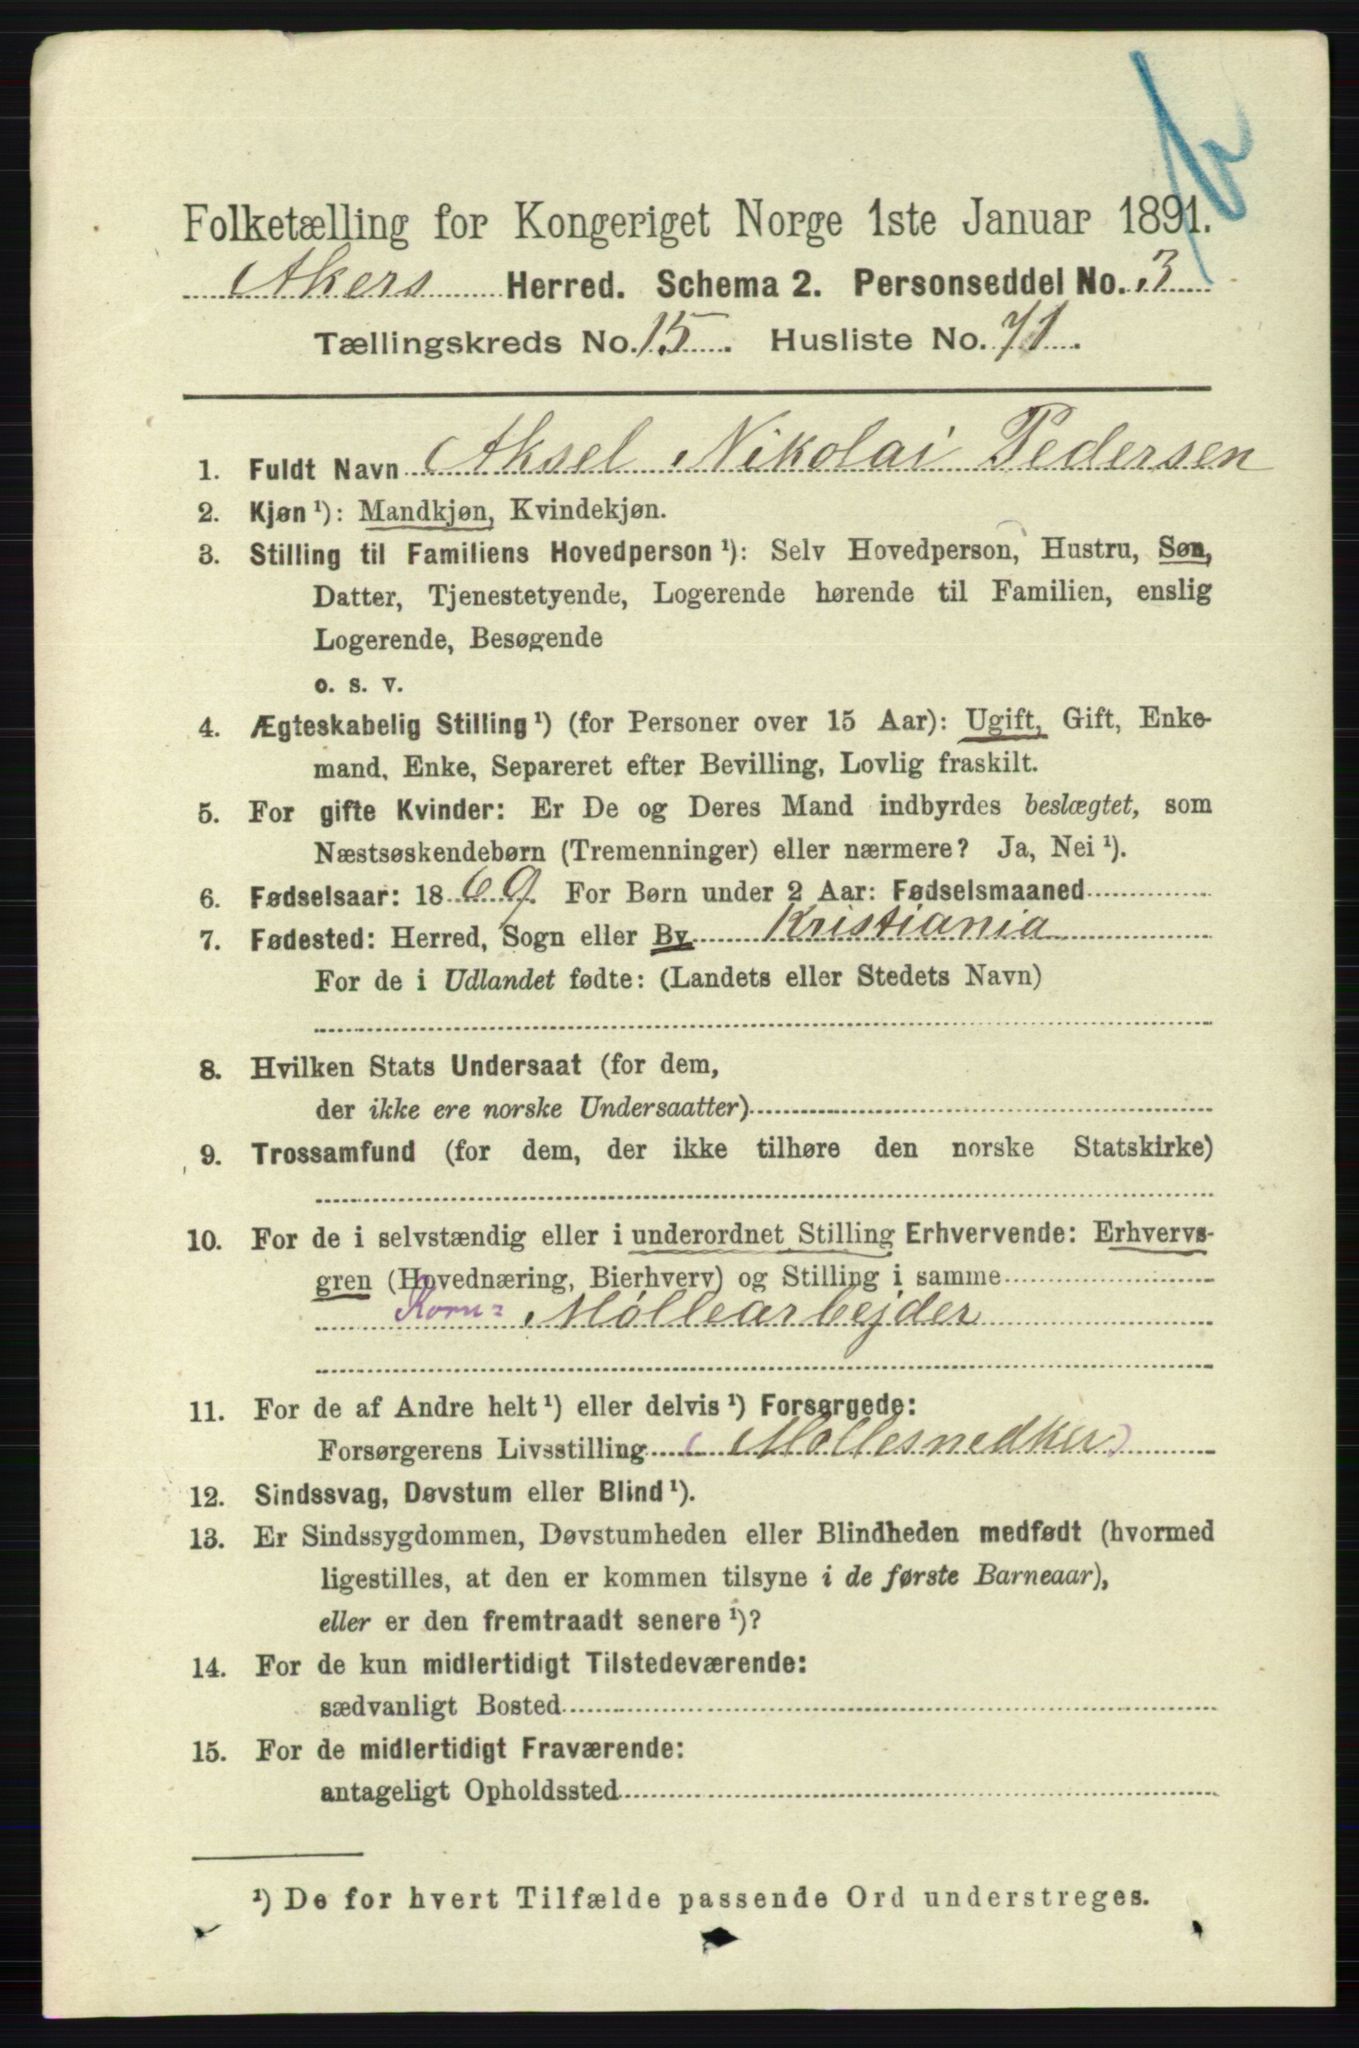 Folketælling for Kongeriget Norge 1ste Januar 1891.
Akers Herred. Schema 2. Personseddel No. 3
Tællingskreds No. 15. Husliste No. 71.
1. Fuldt Navn Aksel Nikolai Pedersen
2. Kjøn¹): Mandkjøn, Kvindekjøn.
3. Stilling til Familiens Hovedperson¹): Selv Hovedperson, Hustru, Søn,
Datter, Tjenestetyende, Logerende hørende til Familien, enslig
Logerende, Besøgende
o. s. v.
4. Ægteskabelig Stilling¹) (for Personer over 15 Aar): Ugift, Gift, Enke-
mand, Enke, Separeret efter Bevilling, Lovlig fraskilt.
5. For gifte Kvinder: Er De og Deres Mand indbyrdes beslægtet, som
Næstsøskendebørn (Tremenninger) eller nærmere? Ja, Nei¹).
6. Fødselsaar: 1869. For Børn under 2 Aar: Fødselsmaaned
7. Fødested: Herred, Sogn eller By Kristiania
For de i Udlandet fødte: (Landets eller Stedets Navn)
8. Hvilken Stats Undersaat (for dem,
der ikke ere norske Undersaatter)
9. Trossamfund (for dem, der ikke tilhøre den norske Statskirke)
10. For de i selvstændig eller i underordnet Stilling Erhvervende: Erhvervs-
gren (Hovednæring, Bierhverv) og Stilling i samme
Korn- Møllearbejder
11. For de af Andre helt¹) eller delvis¹) Forsørgede:
Forsørgerens Livsstilling (Møllesnedker)
12. Sindssvag, Døvstum eller Blind¹).
13. Er Sindssygdommen, Døvstumheden eller Blindheden medfødt (hvormed
ligestilles, at den er kommen tilsyne i de første Barneaar),
eller er den fremtraadt senere¹)?
14. For de kun midlertidigt Tilstedeværende:
sædvanligt Bosted
15. For de midlertidigt Fraværende:
antageligt Opholdssted
¹) De for hvert Tilfælde passende Ord understreges.